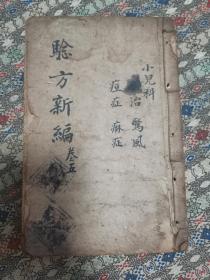 小兒科
治 驚風
痘症 痳症
騐方新編 卷五